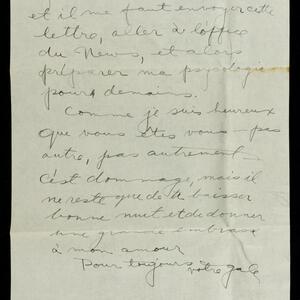 et il me faut envoyer cette
lettre, aller à l'office
du News, et alors
préparer ma psycologie
pour demains.
Comme je suis heureux
que vous êtes vous - pas
autre, pas autrement
C'est dommage, mais il
ne reste que de te baisser
bonne nuit et de donner
une grande embrass
à mon amour
Pour toujours
votre gale